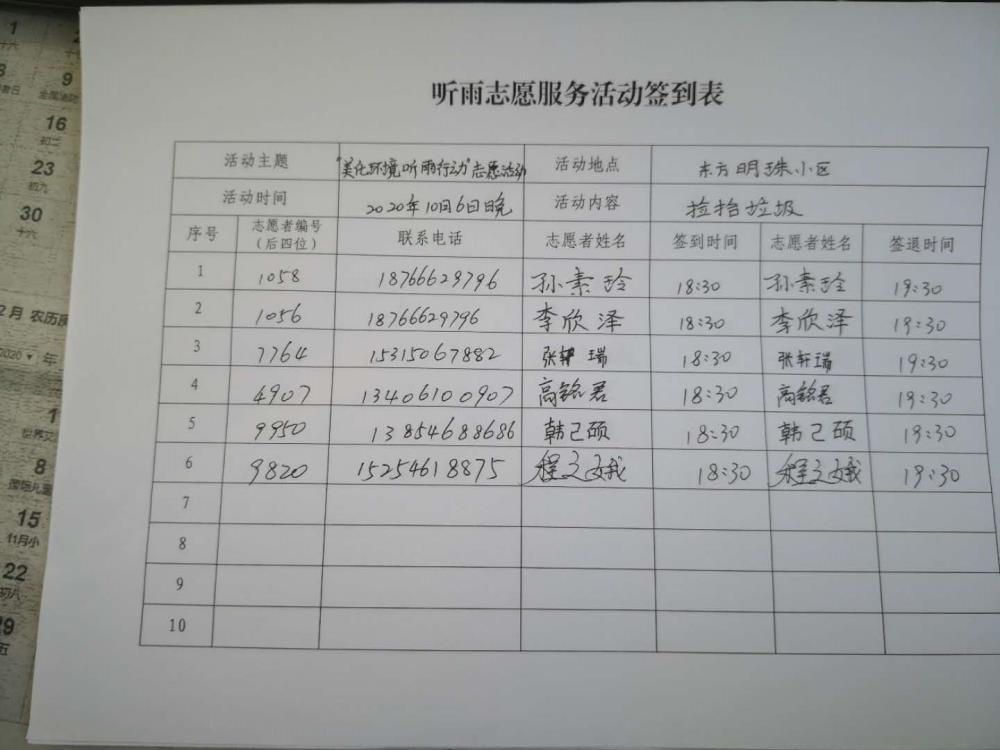 听雨志愿服务活动签到表
活动主题 "美化环境听雨行动"志愿活动 活动地点 东方明珠小区
活动时间 2020年10月6日晚 活动内容 捡拾垃圾
序号 志愿者编号（后四位） 联系电话 志愿者姓名 签到时间 志愿者姓名 签退时间
1 1058 18766629796 孙素玲 18:30 孙素玲 19:30
2 1056 18766629796 李欣泽 18:30 李欣泽 19:30
3 7764 15315067882 张轩瑞 18:30 张轩瑞 19:30
4 4907 13406100907 高铭君 18:30 高铭君 19:30
5 9950 13854688686 韩己硕 18:30 韩己硕 19:30
6 9820 15254618875 程文娥 18:30 程文娥 19:30
7
8
9
10
1
十六
9
16
初三
23
初九
30
十六
2月 农历
2020 年
1
8
15
11月小
22
初八